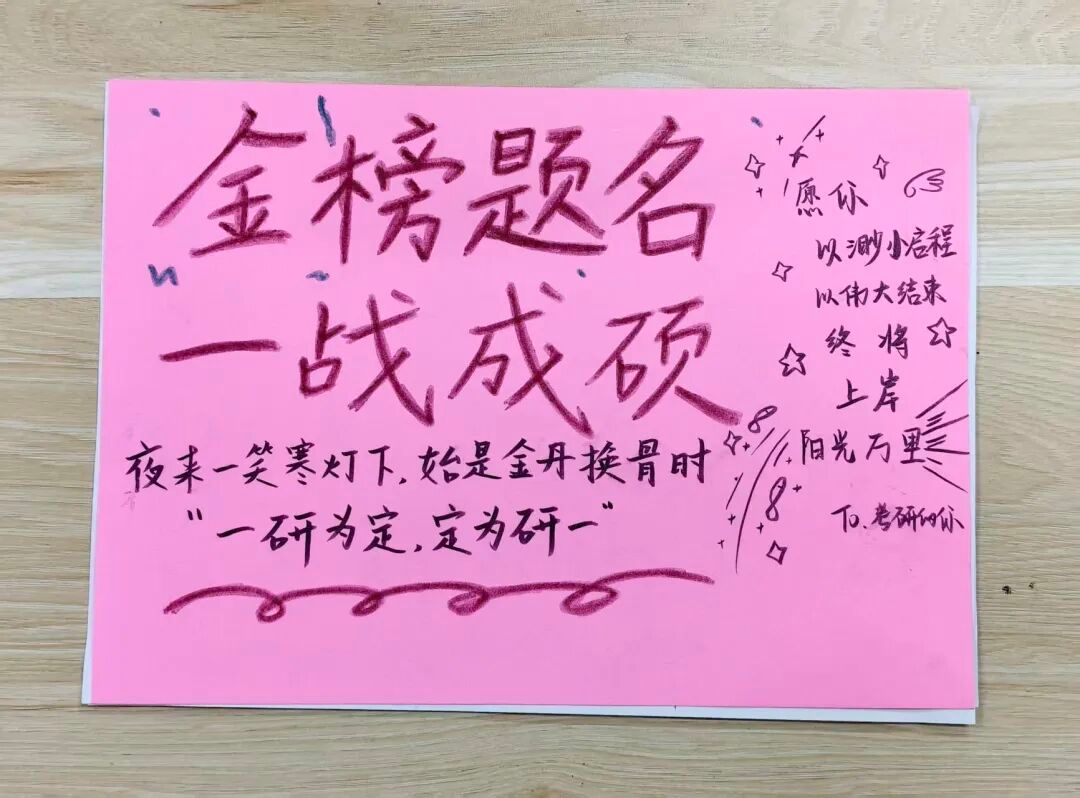 金榜题名
一战成硕
夜来一笑寒灯下,始是金丹换骨时
“一研为定,定为研一”
愿你
以渺小启程
以伟大结束
终将
上岸
阳光万里
To.考研的你